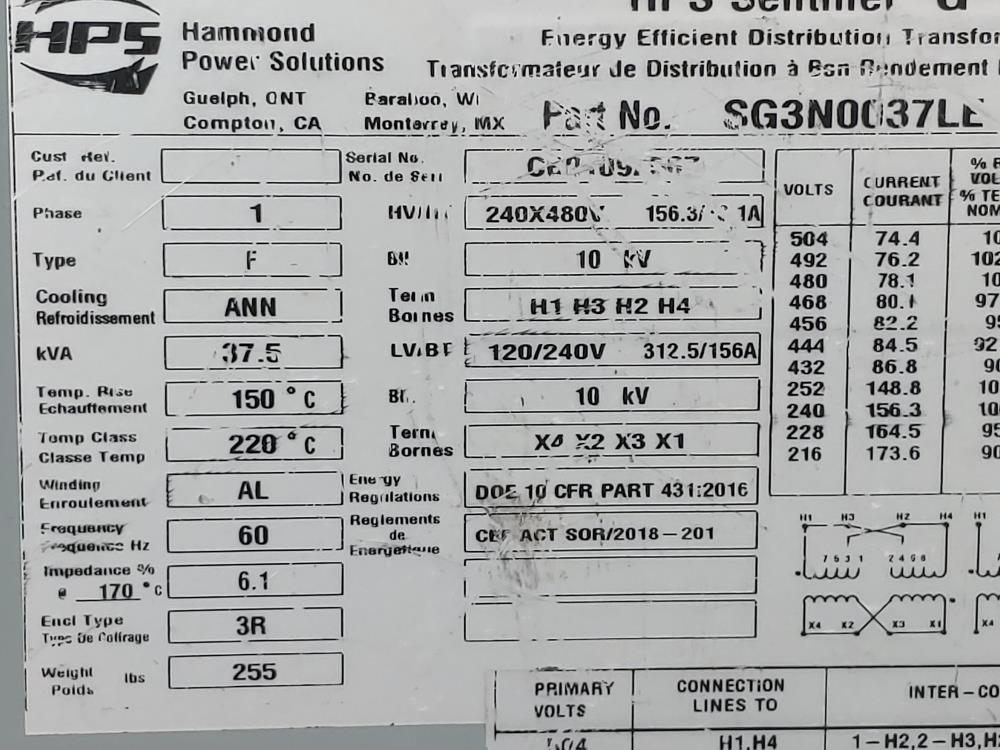 HPS
Hammond
Power Solutions
HPS Sentinel G
Energy Efficient Distribution
Transformateur de Distribution à Bon Rendement
Guelph, ONT
Compton, CA
Baraboo, WI
Monterrey, MX
Part No. SG3N0037LE
Cust Ref.
Ref. du Client
Serial No.
No. de Seri
Phase 1
HV/HT 240X480V 156.3/ 1A
Type F
BIL 10 kV
Cooling
Refroidissement ANN
Term
Bornes H1 H3 H2 H4
kVA 37.5
LV/BT 120/240V 312.5/156A
Temp. Rise
Echauffement 150 °C
BIL 10 kV
Temp Class
Classe Temp 220 °C
Term
Bornes X4 X2 X3 X1
Winding
Enroulement AL
Energy
Regulations DOE 10 CFR PART 431:2016
Frequency
Frequence Hz 60
Reglements
de
Energetique
CEE ACT SOR/2018-201
Impedance %
@ 170 °C 6.1
Encl Type
Type De Coffrage 3R
Weight lbs
Poids 255
VOLTS CURRENT
COURANT
504 74.4
492 76.2
480 78.1
468 80.1
456 82.2
444 84.5
432 86.8
252 148.8
240 156.3
228 164.5
216 173.6
H1 H3 H2 H4 H1
7 5 3 1 2 4 6 8
X4 X2 X3 X1 X4
PRIMARY
VOLTS
CONNECTION
LINES TO
INTER-CO
504 H1,H4 1-H2,2-H3,H